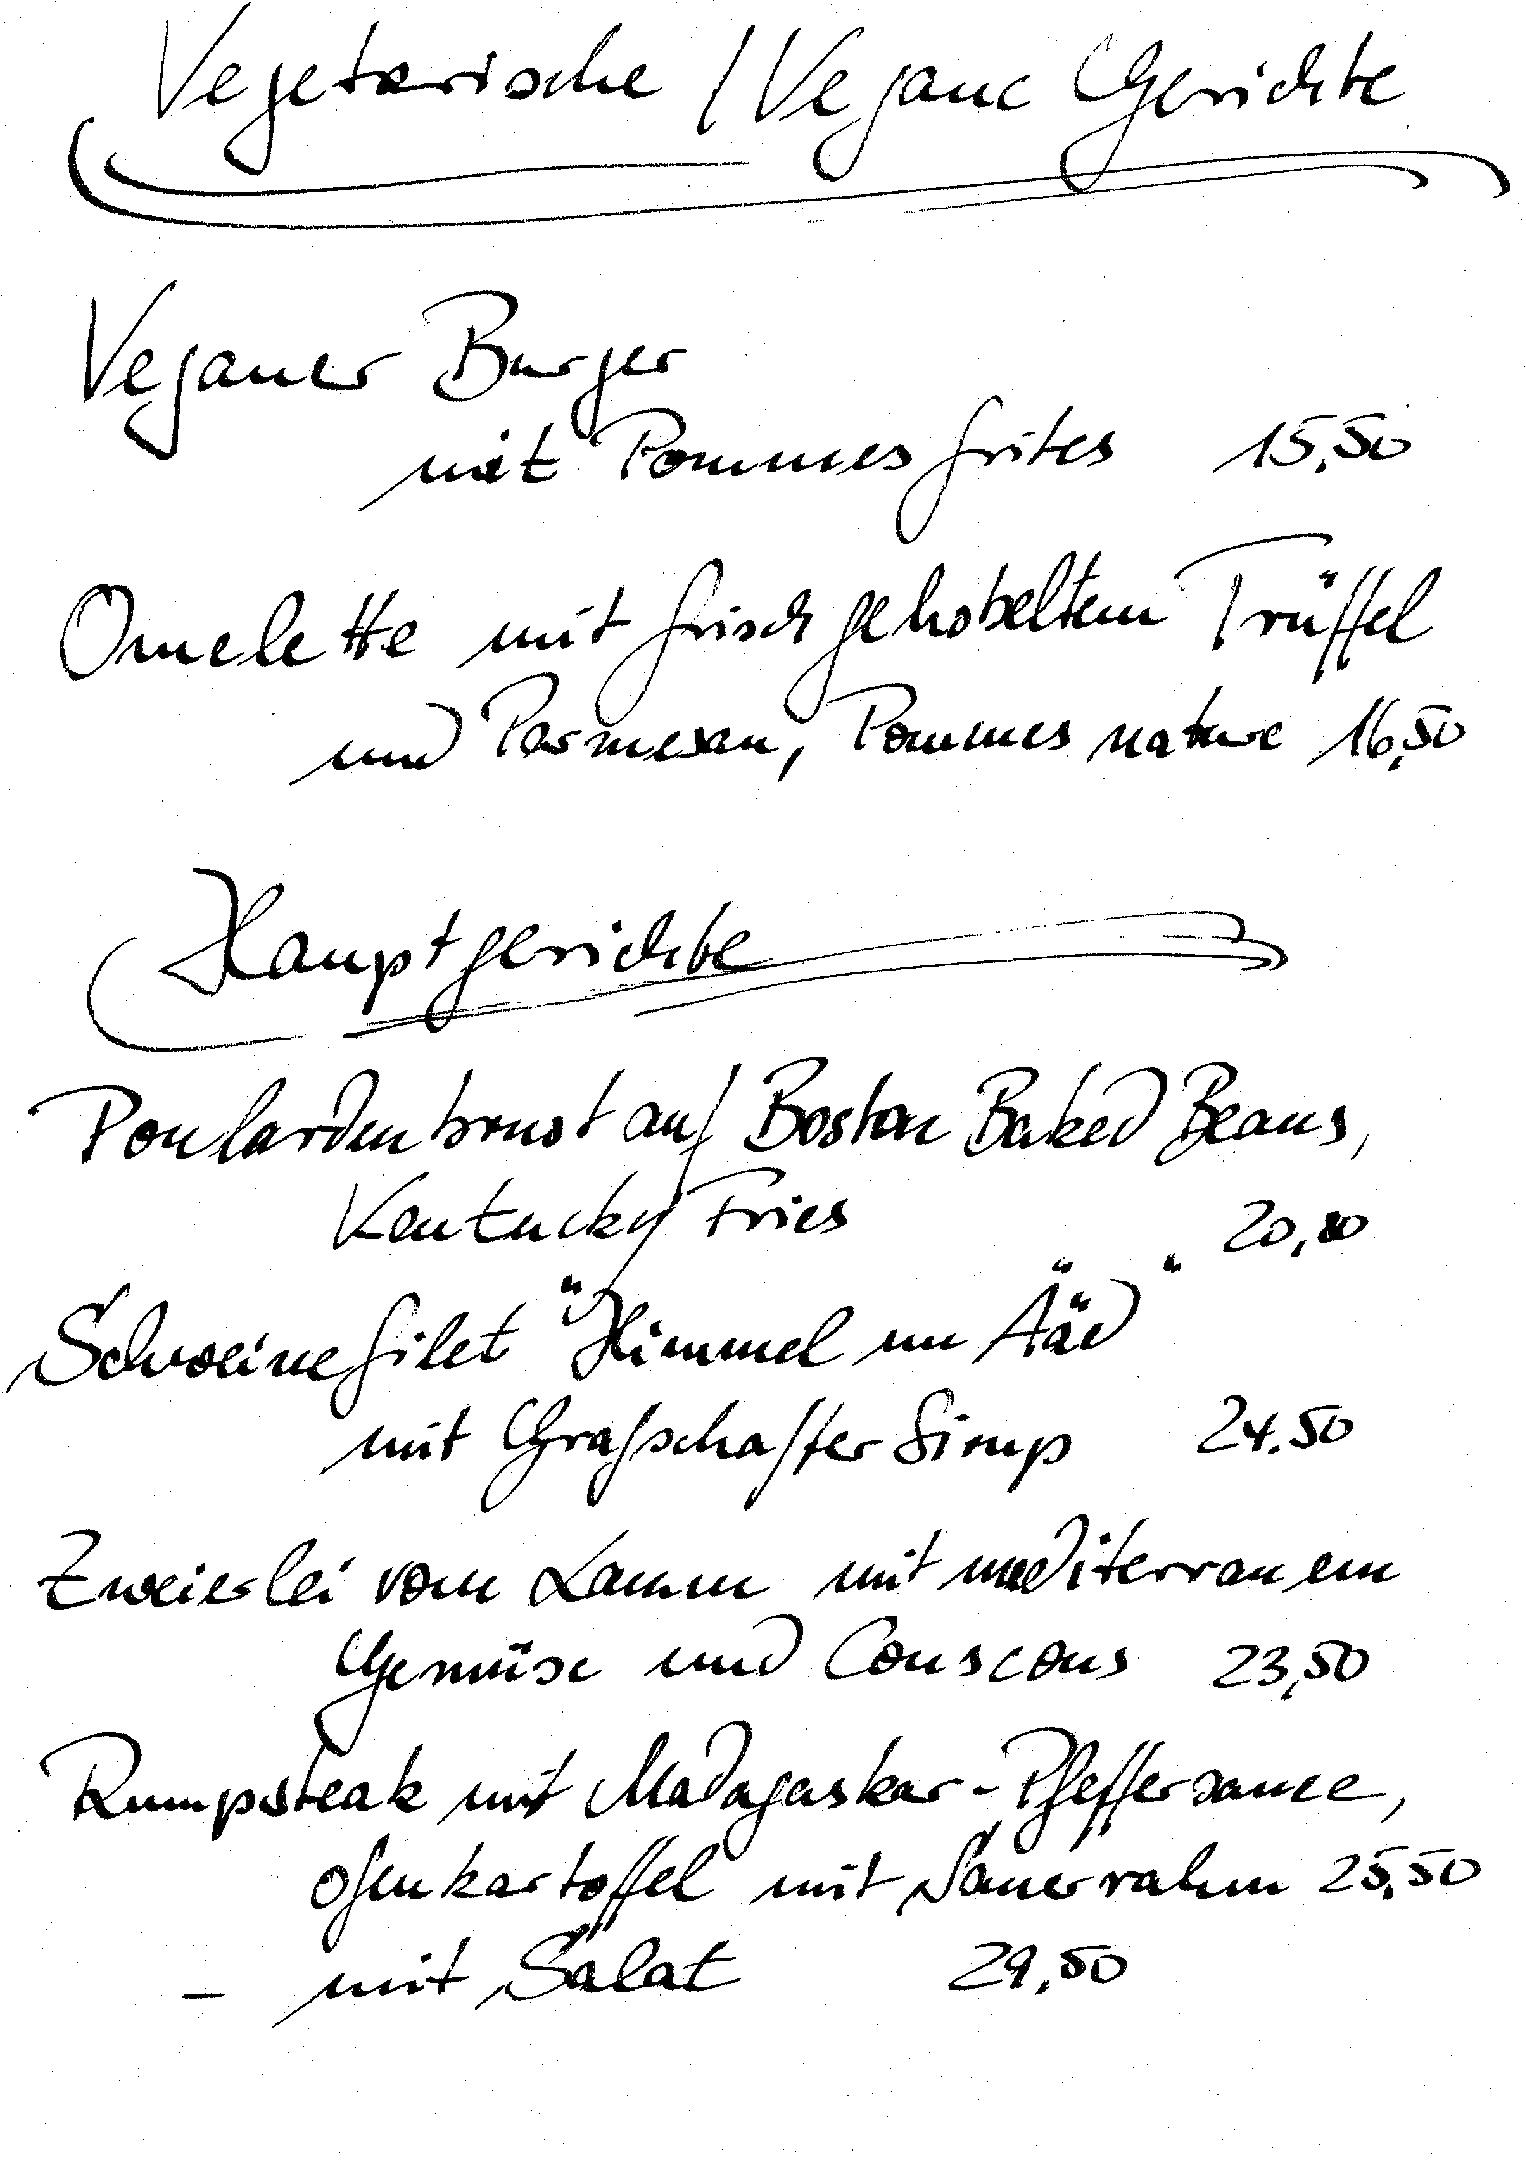 Vegetarische / Vegane Gerichte
Veganer Burger
mit Pommes frites 15,50
Omelette mit frisch gehobeltem Trüffel
und Parmesan, Pommes nature 16,50
Hauptgerichte
Poulardenbrust auf Boston Baked Beans,
Kentucky Fries 20,
Schweinefilet "Himmel un Ääd"
mit Grafschafter Sirup 24.50
Zweierlei vom Lamm mit mediterranem
Gemüse und Couscous 23,50
Rumpsteak mit Madagaskar-Pfeffersauce,
Ofenkartoffel mit Sauerrahm 25,50
- mit Salat 29,50